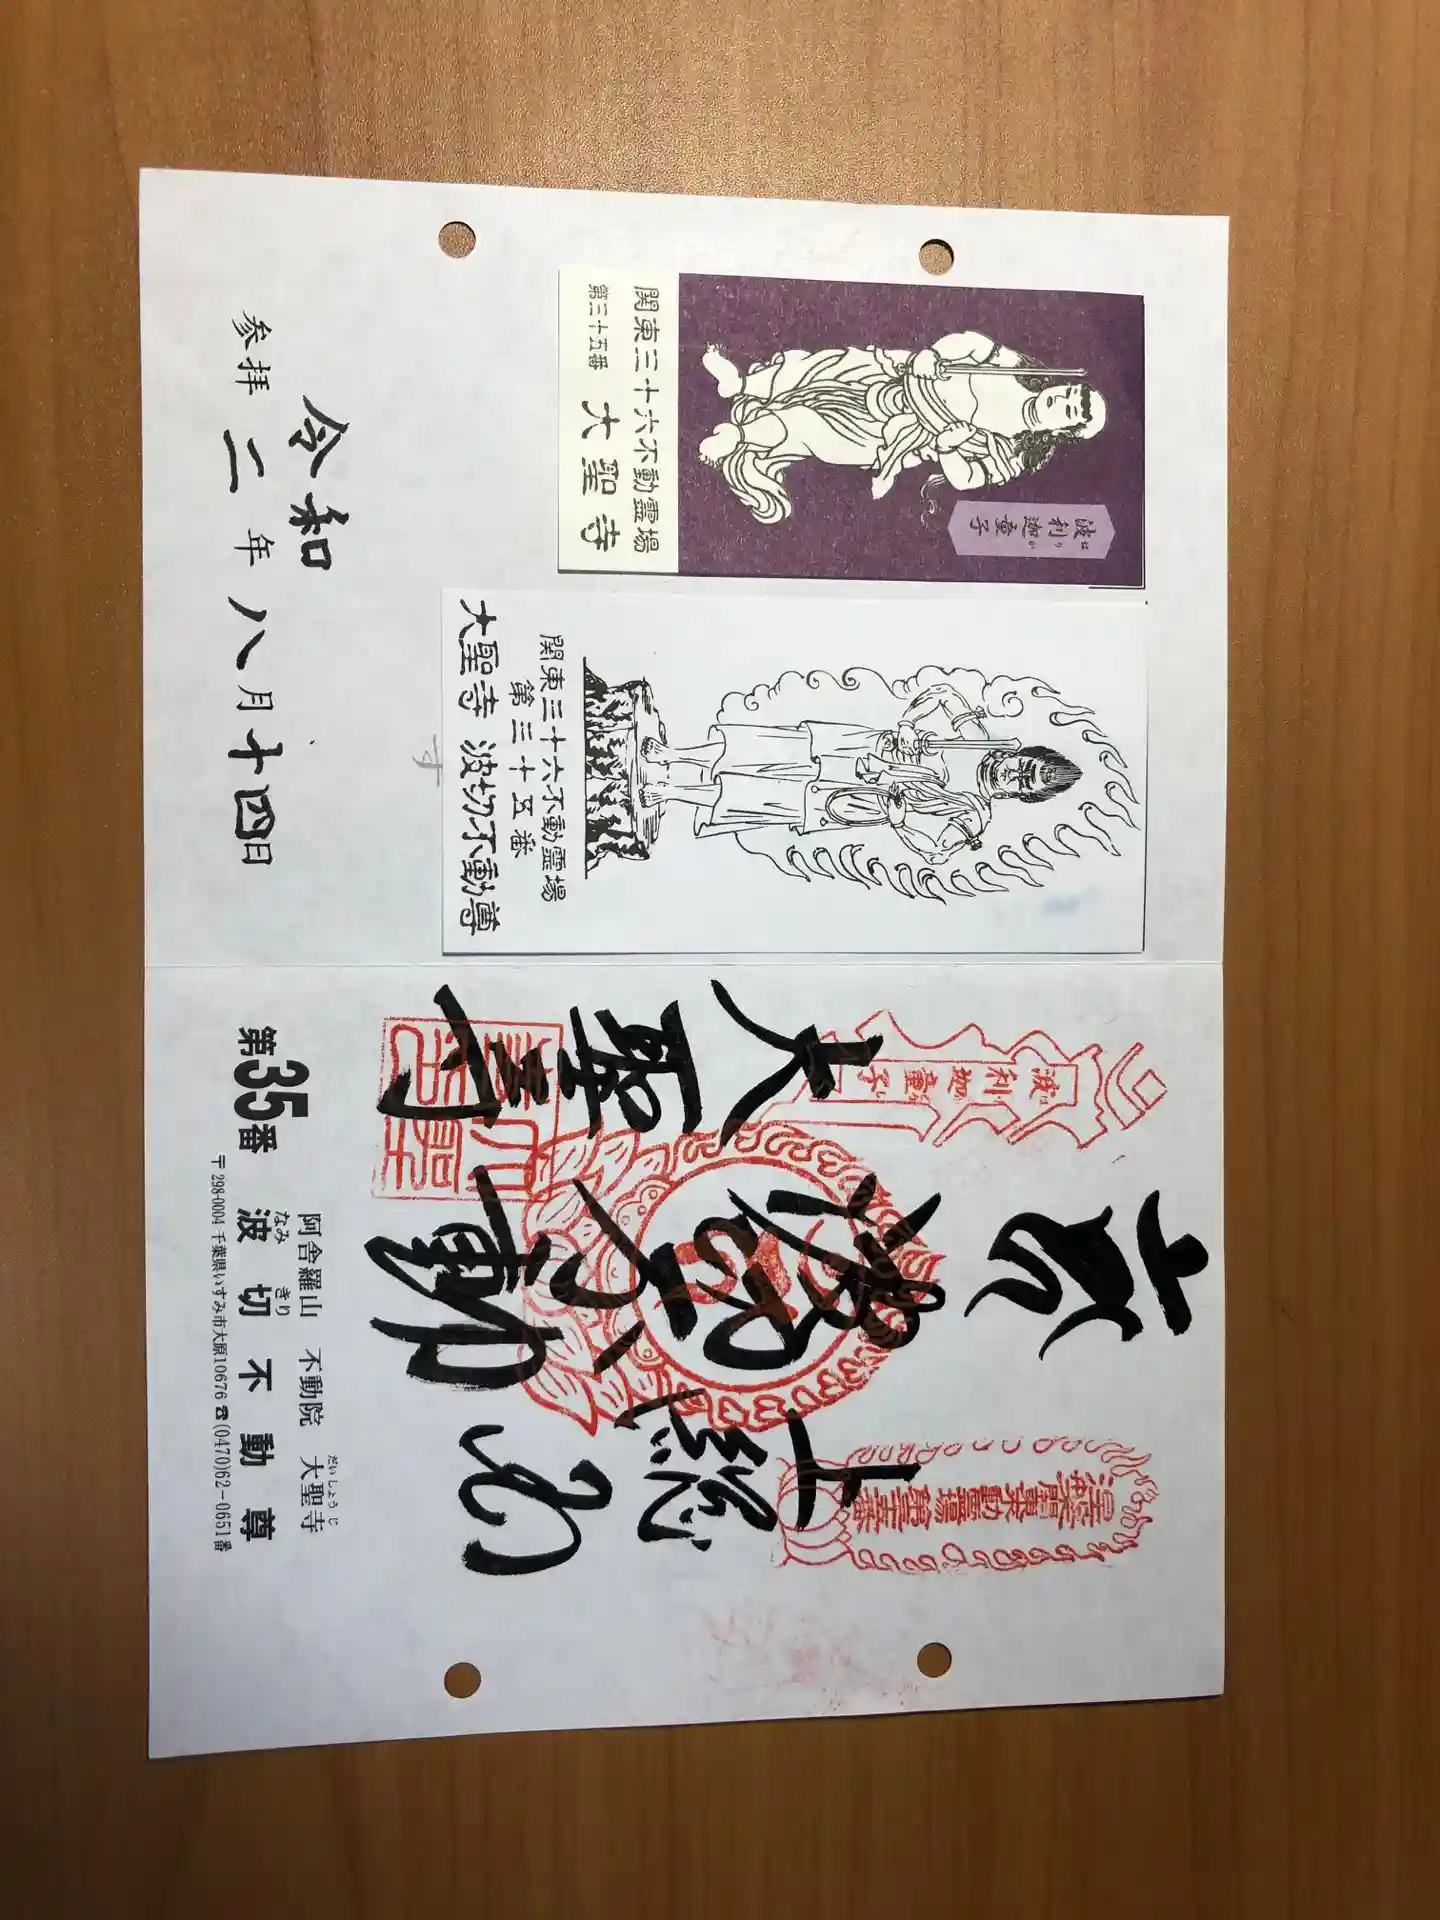 関東三十六不動霊場
第三十五番 大聖寺
波利迦童子
はりか
関東三十六不動霊場
第三十五番
大聖寺 波切不動尊
令和
参拝 二年八月十四日
上総
波切不動
大聖寺
波利迦童子
阿舎羅山 不動院 大聖寺
だいしょうじ
第35番 波切不動尊
なみきり
〒298-0004 千葉県いすみ市大原10676 ☎(0470)62-0651番